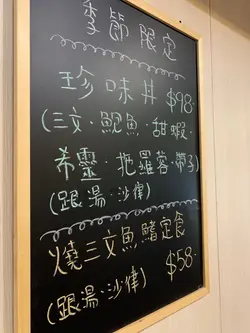 季節限定
珍味丼 $98.
(三文.鮑魚.甜蝦.
希靈.扡羅蓉.帶子)
(跟湯.沙律)
燒三文魚鰭定食
(跟湯.沙律) $58.